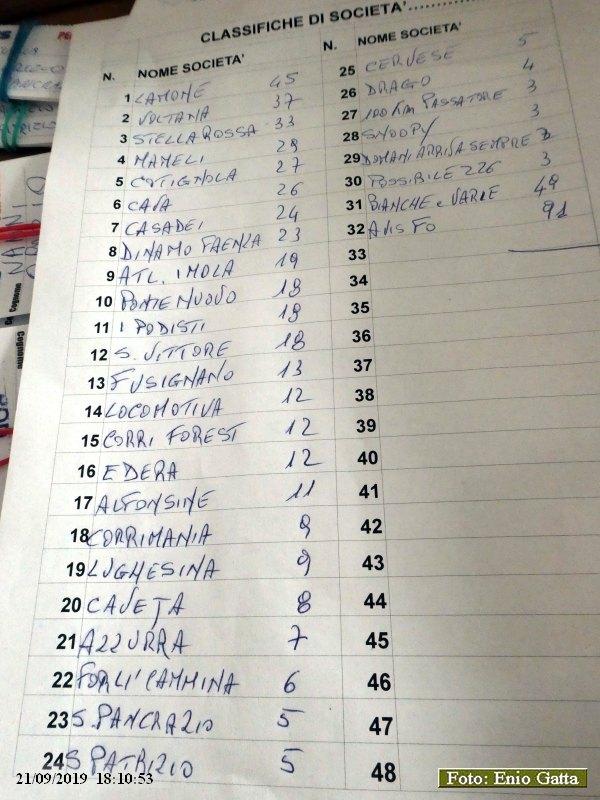 CLASSIFICHE DI SOCIETA'
N. NOME SOCIETA'
1 LAMONE 45
2 VOLTANA 37
3 STELLA ROSSA 33
4 MAMELI 29
5 COTIGNOLA 27
6 CAVA 26
7 CASADEI 24
8 DINAMO FAENZA 23
9 ATL. IMOLA 19
10 PONTE NUOVO 18
11 I PODISTI 18
12 S. VITTORE 18
13 FUSIGNANO 13
14 LOCOMOTIVA 12
15 CORRI FOREST 12
16 EDERA 12
17 ALFONSINE 11
18 CORRIMANIA 9
19 LUGHESINA 9
20 CAVEJA 8
21 AZZURRA 7
22 FORLI' CAMMINA 6
23 S. PANCRAZIO 5
24 S PATRIZIO 5
N. NOME SOCIETA'
25 CERVESE 5
26 DRAGO 4
27 100 KM PASSATORE 3
28 SNOOPY 3
29 DOMANI ARRIVA SEMPRE 3
30 POSSIBILE 226 3
31 BIANCHE e VARIE 49
32 AVIS FO 91
33
34
35
36
37
38
39
40
41
42
43
44
45
46
47
48
Cognome
21/09/2019 18:10:53
Foto: Enio Gatta